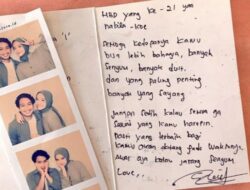 HBD yang ke - 21 yaa
nabila - koe
Semoga kedepannya kamu
bisa lebih bahagia, banyak
senyum, banyak duit,
dan yang paling penting
banyak yang sayang
Jangan sedih kalau semua ga
sesuai yang kamu harapin
pasti yang terbaik bagi
kamu akan datang pada waktunya
kalau jatang
Love...